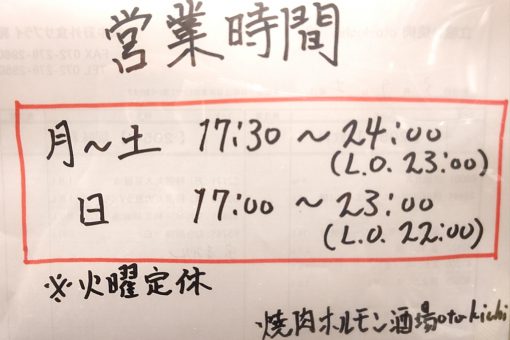 営業時間
月～土 17:30 ～ 24:00
(L.O. 23:00)
日 17:00 ～ 23:00
(L.O. 22:00)
※火曜定休
焼肉ホルモン酒場otokichi